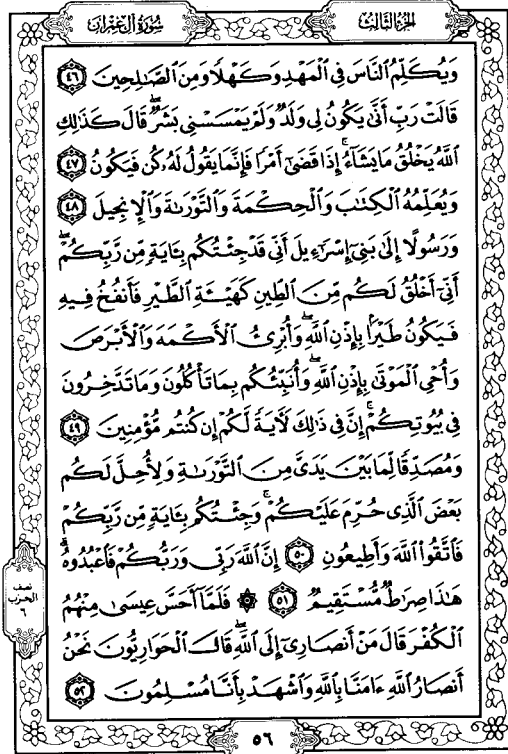 سُورَةُ آلِ عِمْرَانَ
الجُزْءُ الثَّالِثُ
وَيُكَلِّمُ ٱلنَّاسَ فِي ٱلْمَهْدِ وَكَهْلًا وَمِنَ ٱلصَّٰلِحِينَ ٤٦
قَالَتْ رَبِّ أَنَّىٰ يَكُونُ لِي وَلَدٌ وَلَمْ يَمْسَسْنِي بَشَرٌ ۖ قَالَ كَذَٰلِكِ
ٱللَّهُ يَخْلُقُ مَا يَشَآءُ ۚ إِذَا قَضَىٰٓ أَمْرًا فَإِنَّمَا يَقُولُ لَهُۥ كُن فَيَكُونُ ٤٧
وَيُعَلِّمُهُ ٱلْكِتَٰبَ وَٱلْحِكْمَةَ وَٱلتَّوْرَىٰةَ وَٱلْإِنجِيلَ ٤٨
وَرَسُولًا إِلَىٰ بَنِيٓ إِسْرَٰٓءِيلَ أَنِّي قَدْ جِئْتُكُم بِـَٔايَةٍ مِّن رَّبِّكُمْ ۖ
أَنِّيٓ أَخْلُقُ لَكُم مِّنَ ٱلطِّينِ كَهَيْـَٔةِ ٱلطَّيْرِ فَأَنفُخُ فِيهِ
فَيَكُونُ طَيْرًۢا بِإِذْنِ ٱللَّهِ ۖ وَأُبْرِئُ ٱلْأَكْمَهَ وَٱلْأَبْرَصَ
وَأُحْيِ ٱلْمَوْتَىٰ بِإِذْنِ ٱللَّهِ ۖ وَأُنَبِّئُكُم بِمَا تَأْكُلُونَ وَمَا تَدَّخِرُونَ
فِي بُيُوتِكُمْ ۚ إِنَّ فِي ذَٰلِكَ لَـَٔايَةً لَّكُمْ إِن كُنتُم مُّؤْمِنِينَ ٤٩
وَمُصَدِّقًا لِّمَا بَيْنَ يَدَيَّ مِنَ ٱلتَّوْرَىٰةِ وَلِأُحِلَّ لَكُم
بَعْضَ ٱلَّذِي حُرِّمَ عَلَيْكُمْ ۚ وَجِئْتُكُم بِـَٔايَةٍ مِّن رَّبِّكُمْ
فَٱتَّقُوا۟ ٱللَّهَ وَأَطِيعُونِ ٥٠ إِنَّ ٱللَّهَ رَبِّي وَرَبُّكُمْ فَٱعْبُدُوهُ ۗ
هَٰذَا صِرَٰطٌ مُّسْتَقِيمٌ ٥١ ۞ فَلَمَّآ أَحَسَّ عِيسَىٰ مِنْهُمُ
ٱلْكُفْرَ قَالَ مَنْ أَنصَارِيٓ إِلَى ٱللَّهِ ۖ قَالَ ٱلْحَوَارِيُّونَ نَحْنُ
أَنصَارُ ٱللَّهِ ءَامَنَّا بِٱللَّهِ وَٱشْهَدْ بِأَنَّا مُسْلِمُونَ ٥٢
نصف
الحزب
٦
٥٦